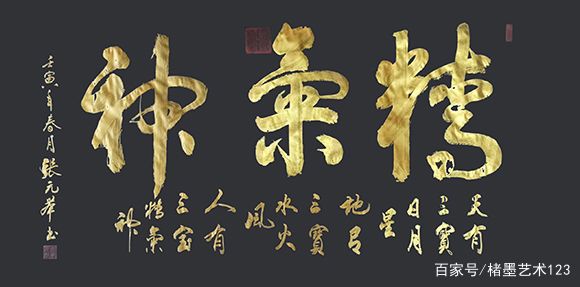 精氣神
天有
三寶
日月
星
地有
三寶
水火
風
人有
三宝
精氣
神
壬寅年春月張元书
百家号/楮墨艺术123